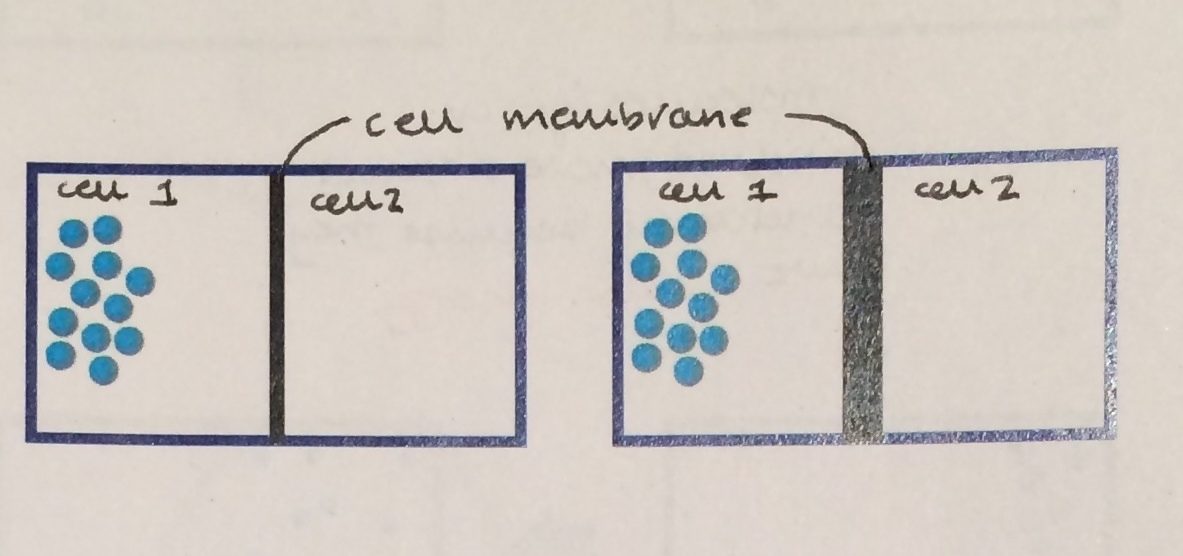 cell membrane
cell 1
cell 2
cell 1
cell 2